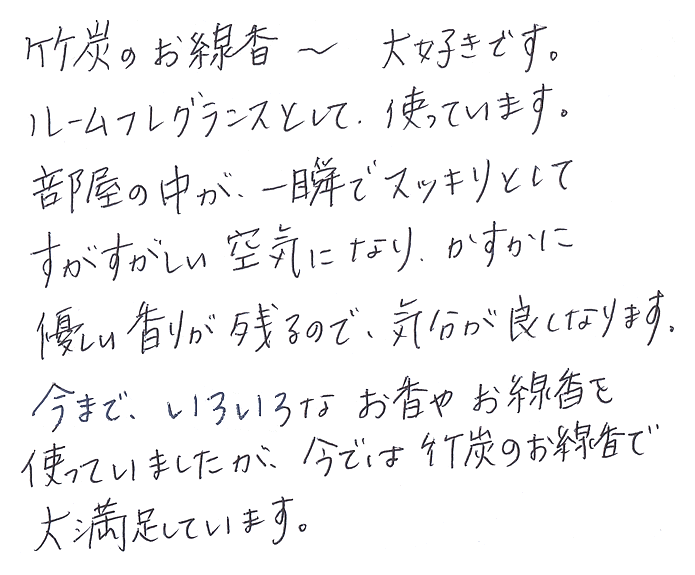 竹炭のお線香～　大好きです。
ルームフレグランスとして、使っています。
部屋の中が、一瞬でスッキリとして
すがすがしい空気になり、かすかに
優しい香りが残るので、気分が良くなります。
今まで、いろいろなお香やお線香を
使っていましたが、今では竹炭のお線香で
大満足しています。